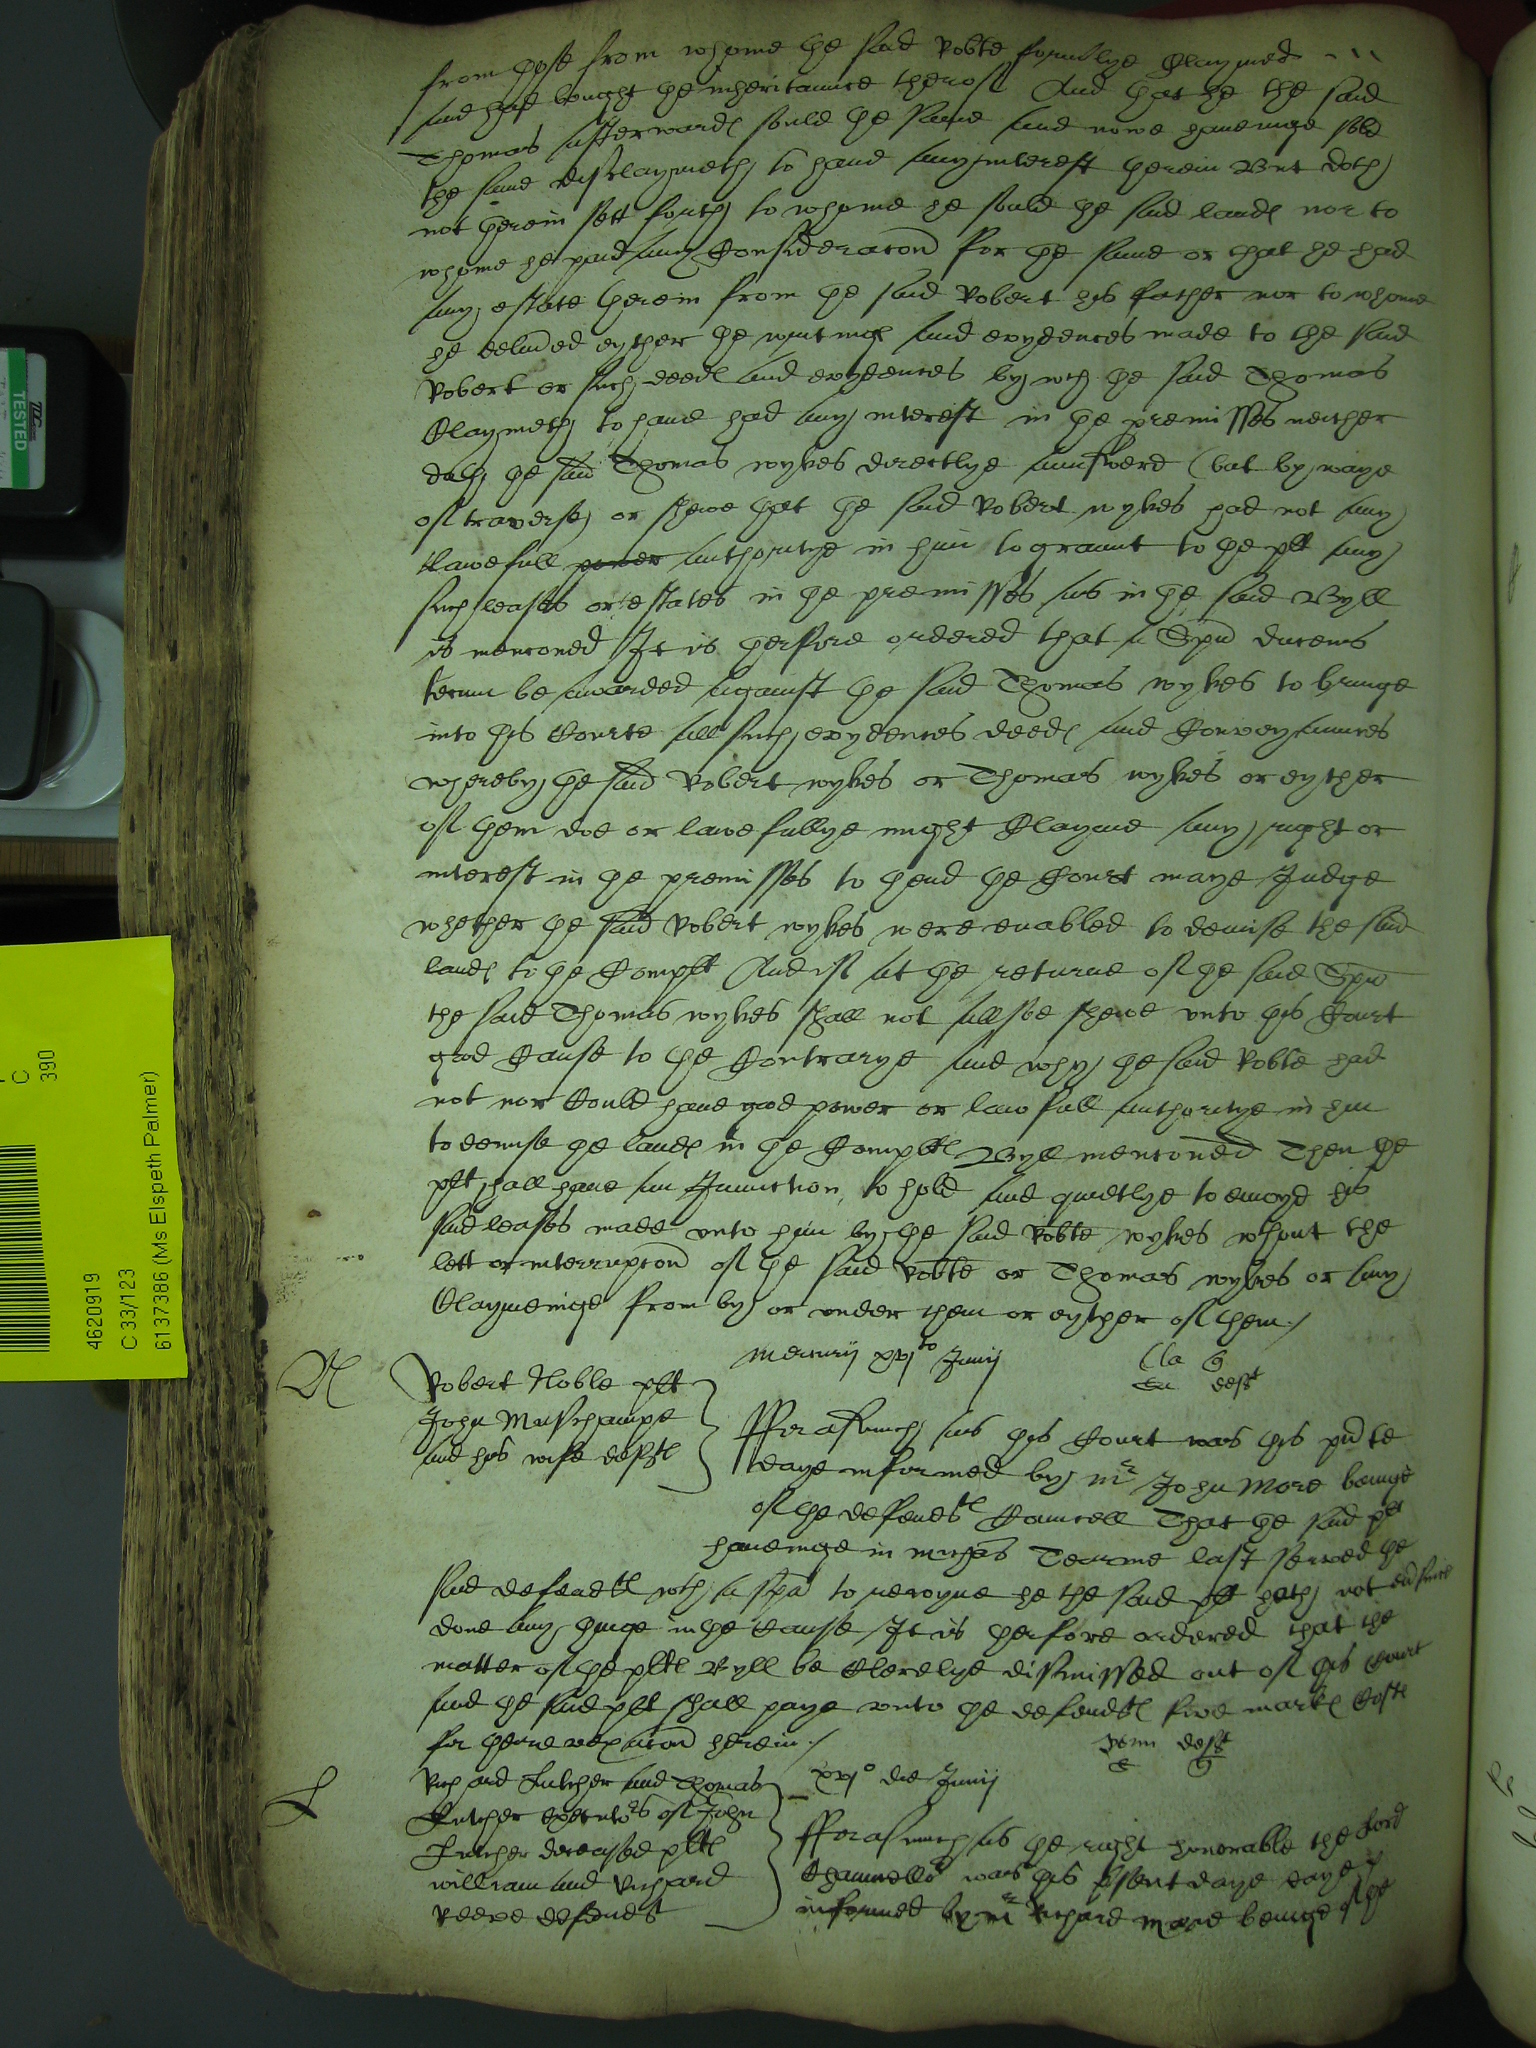 from hyse from whome the said Robte formerlye claymed
and had bought the inheritaunce therof And that he the said
Thomas afterwardℓ sould the same and nowe haveinge sold
the same disclaymeth to have any interest therein But doth
not therein sett forth to whome he sould the said landℓ nor to
whome he paid any Consideracon for the same or that he had
any estate therein from the said Robert his father nor to whome
he delivred eyther the writingℓ and evydences made to the said
Robert or such deedℓ and evydences by wch the said Thomas
Claymeth to have had any interest in the premisses neither
doth the said Thomas wykes directlye aunswere (but by waye
of traverse) or shewe that the said Robert wykes had not any
lawefull power authoritye in him to graunt to the plt any
such leases or estates in the premisses as in the said Byll
is mencioned It is therfore ordered that a Spa ducens
tecum be awarded against the said Thomas wykes to bringe
into this Courte all such evydences deedℓ and Conveyaunces
whereby the said Robert wykes or Thomas wykes or eyther
of them doe or lawefullye might Clayme any right or
interest in the premisses to thend the Court maye Judge
whether the said Robert wykes were enabled to demise the said
landℓ to the Complt And if at the returne of the said Spa
the said Thomas wykes shall not allso shewe unto this Court
good Cause to the Contrarye and why the said Robte had
not nor Could have good power or lawfull authoritye in him
to demise the landℓ in the Compltℓ Byll mencioned Then the
plt shall have an Iniunction to hold and quietlye to enioye his
said leases made unto him by the said Robte wykes wthout the
lett or interrupcon of the said Robte or Thomas wykes or any
Claymeinge from by or under them or eyther of them /
Mercurij xvjto Junij
Cla G
deft
N
Robert Noble plt
John Muschampe
and his wife deftℓ
fforasmuch as this Court was this pnte
daye informed by mr John More beinge
of the defendtℓ Councell That the said plt
haveinge in Michas Tearme last served the
said defendtℓ wth a spa to reioyne he the said plt hath not
done any thinge in the Cause It is therfore ordered that the
matter of the pltℓ Byll be Clerelye dismissed out of this Court
and the said plt shall paye unto the defendtℓ five markℓ Costℓ
for theire vexacon herein /
deft
xvjo die Junij
Richard Fulcher and Thomas
Fulcher executors of John
Fulcher deceased pltℓ
william and Richard
Reeve defendts
fforasmuch as the right honorable the Lord
Chauncellor was this psent daye
informed by mr Richard more beinge of the
TESTED
C
390
4620919
C 33/123
6137386 (Ms Elspeth Palmer)